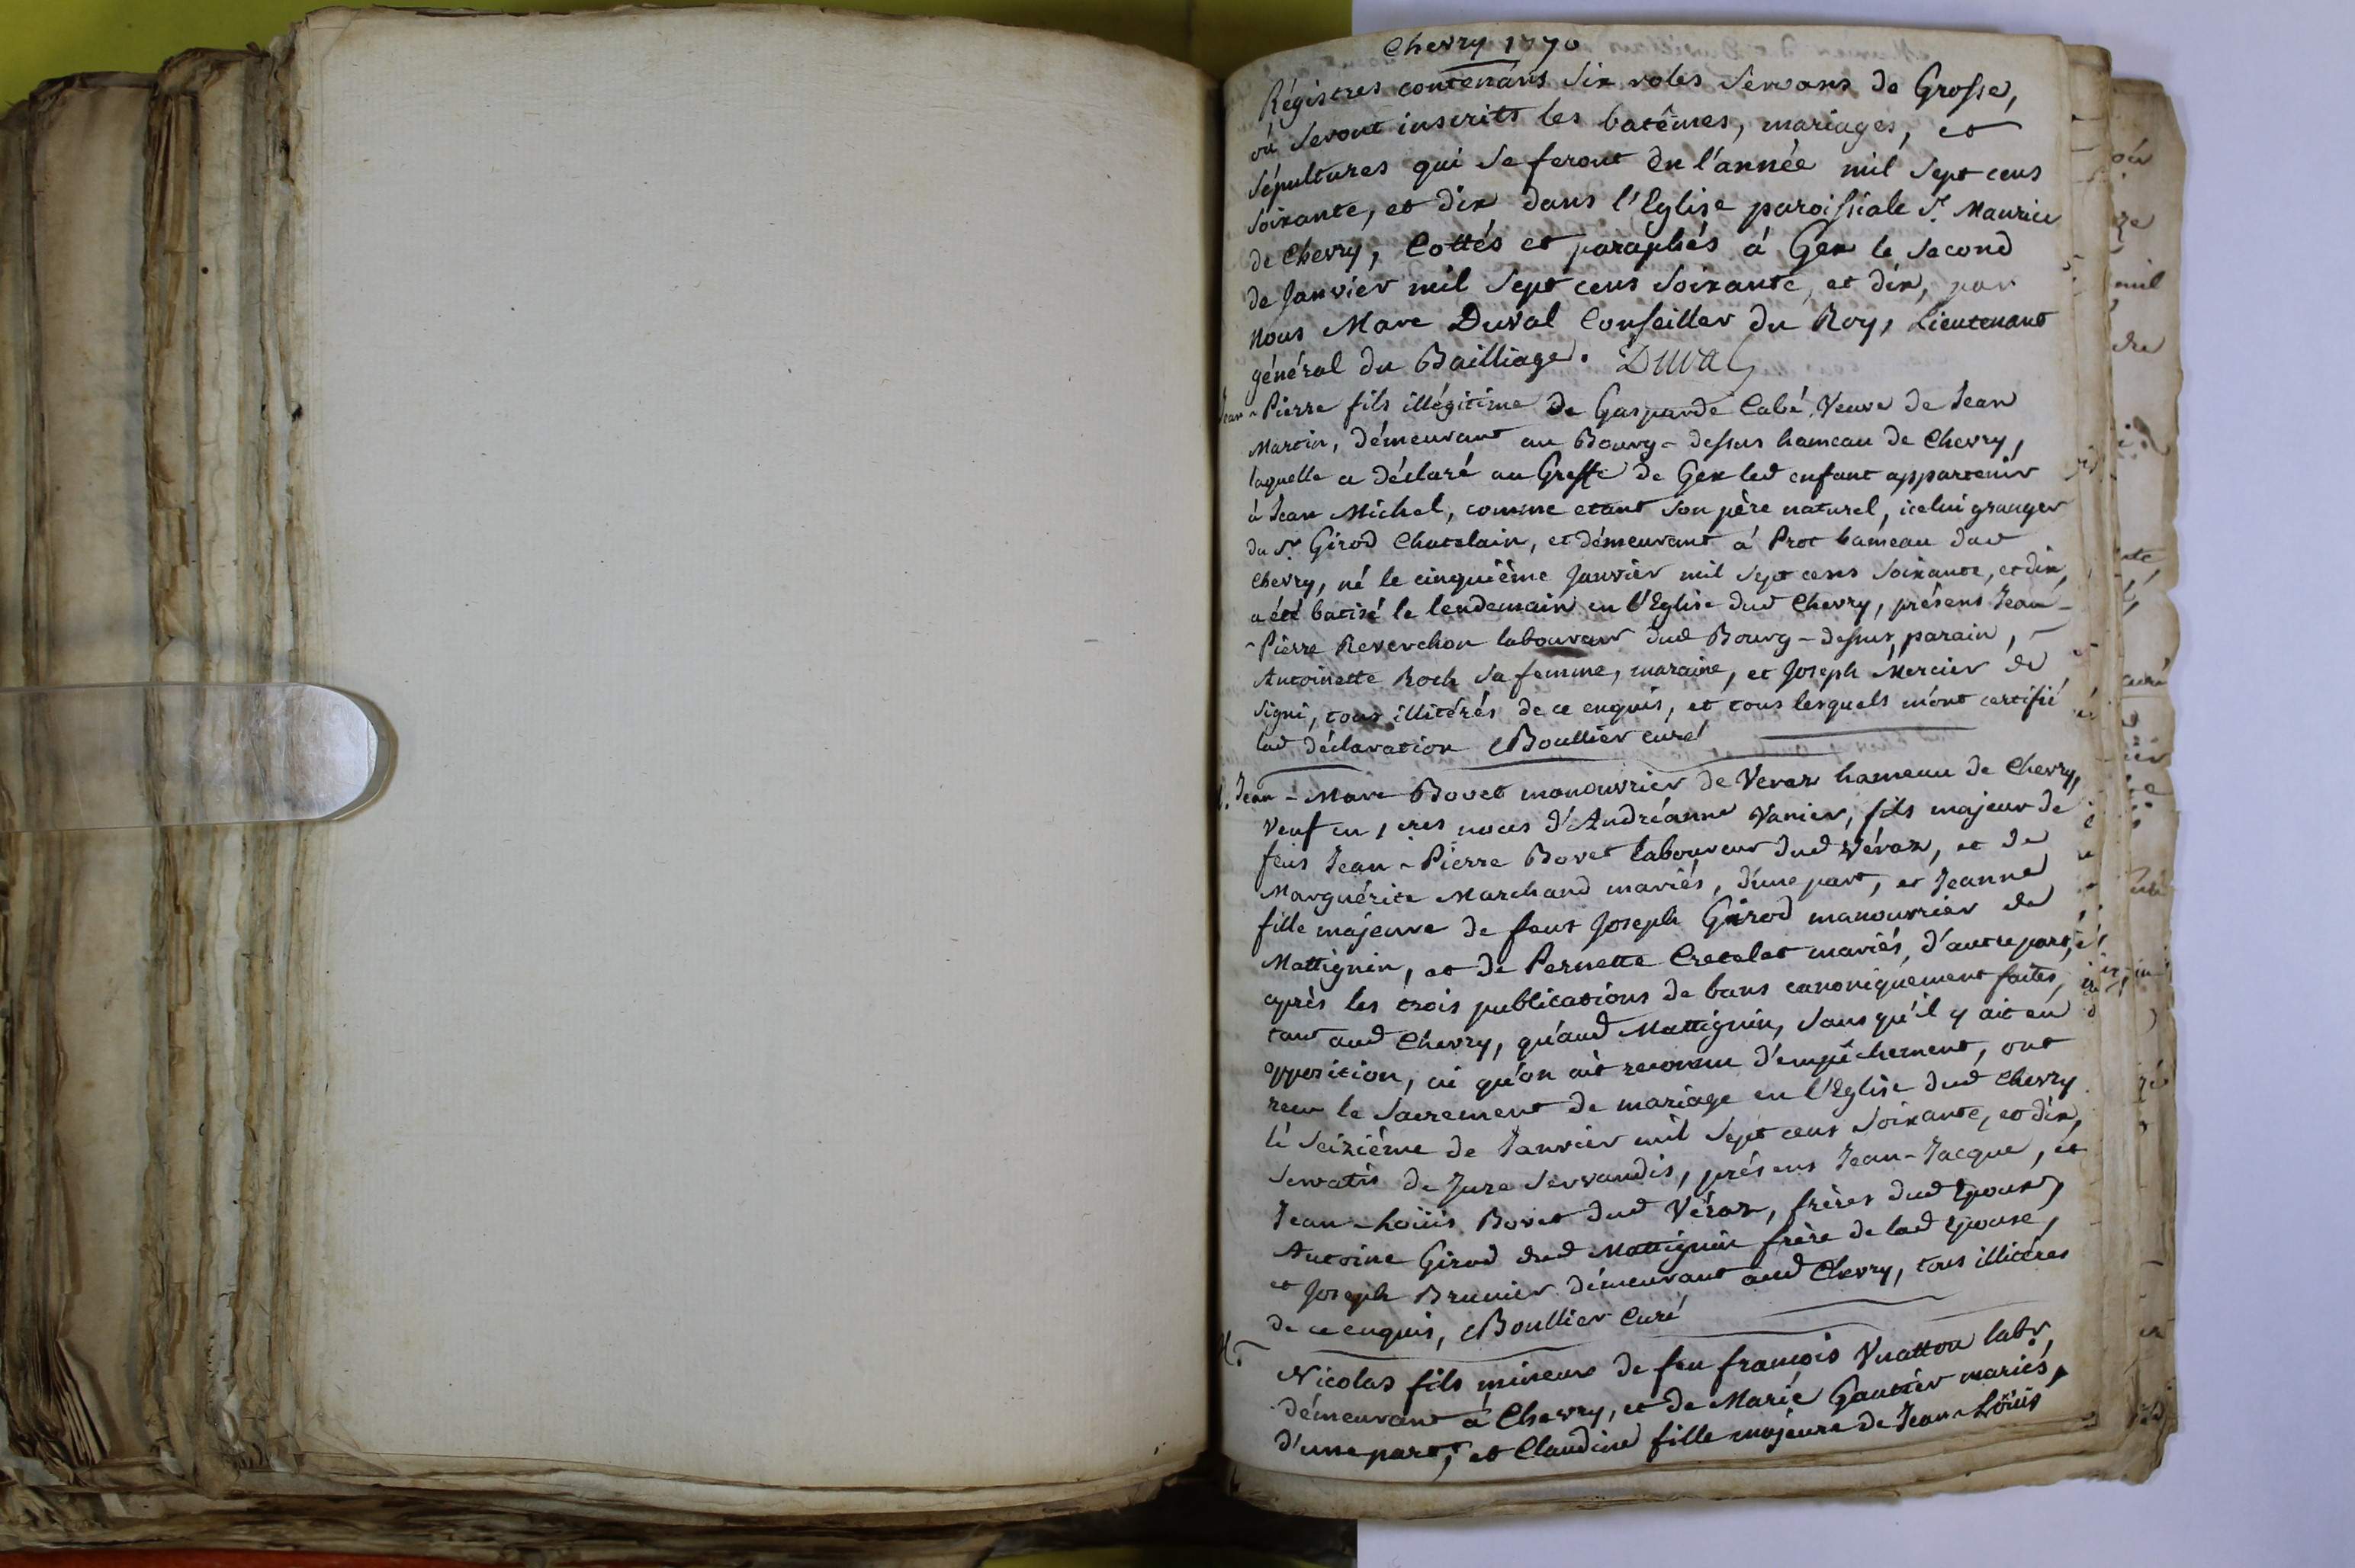 Chevry 1770
Régistres contenans six roles servans de Grosse,
où seront inscrits les batêmes, mariages, et
sépultures qui se feront en l'année mil sept cens
soixante, et dix dans l'Eglise paroissiale St. Maurice
de Chevry, Cottés et paraphés à Gex le second
de Janvier mil sept cens soixante, et dix, par
nous Marc Duval Conseiller du Roy, Lieutenant
général du Bailliage. Duval
Jean-Pierre fils illégitime de Gasparde Cabé Veuve de Jean
Martin, démeurant au Bourg-dessus hameau de Chevry,
laquelle a déclaré au Greffe de Gex led enfant appartenir
à Jean Michel, comme etant son père naturel, icelui granger
du Sr. Girod Chatelain, et démeurant à Prot hameau dud
Chevry, né le cinquième Janvier mil sept cens soixante, et dix,
a été batisé le lendemain en l'Eglise dud Chevry, présens Jean-
-Pierre Reverchon laboureur dud Bourg-dessus, parain,
Antoinette Roch sa femme, maraine, et Joseph Mercier de
signi, tous illitérés de ce enquis, et tous lesquels m'ont certifié
lad déclaration Boullier curé
Jean-Marc Bovet manouvrier de Veraz hameau de Chevry,
veuf en 1eres noces d'Andréanne Vanier, fils majeur de
feus Jean-Pierre Bovet laboureur dud Véraz, et de
Marguérite Marchand mariés, d'une part, et Jeanne
fille majeure de feus Joseph Girod manouvrier de
Mattignin, et de Pernette Cretelat mariés, d'autre part,
après les trois publications de bans canoniquement faites,
tant aud Chevry, qu'aud Mattignin, sans qu'il y ait eu
opposition, ni qu'on ait reconnu d'empêchement, ont
reçu le Sacrement de mariage en l'Eglise dud Chevry
le seizième de Janvier mil sept cens soixante, et dix,
servatis de Jure servandis, présens Jean-Jacque, et
Jean-Loüis Bovet dud Véraz, frères dud Epoux,
Antoine Girod dud Mattignin frère de lad Epouse,
et Joseph Brunier démeurant aud Chevry, tous illitéres
de ce enquis, Boullier Curé
M.
Nicolas fils mineur de feu françois Vuattou labr.
démeurant à Chevry, et de Marie Gautier mariés,
d'une part, et Claudine fille majeure de Jean-Loüis